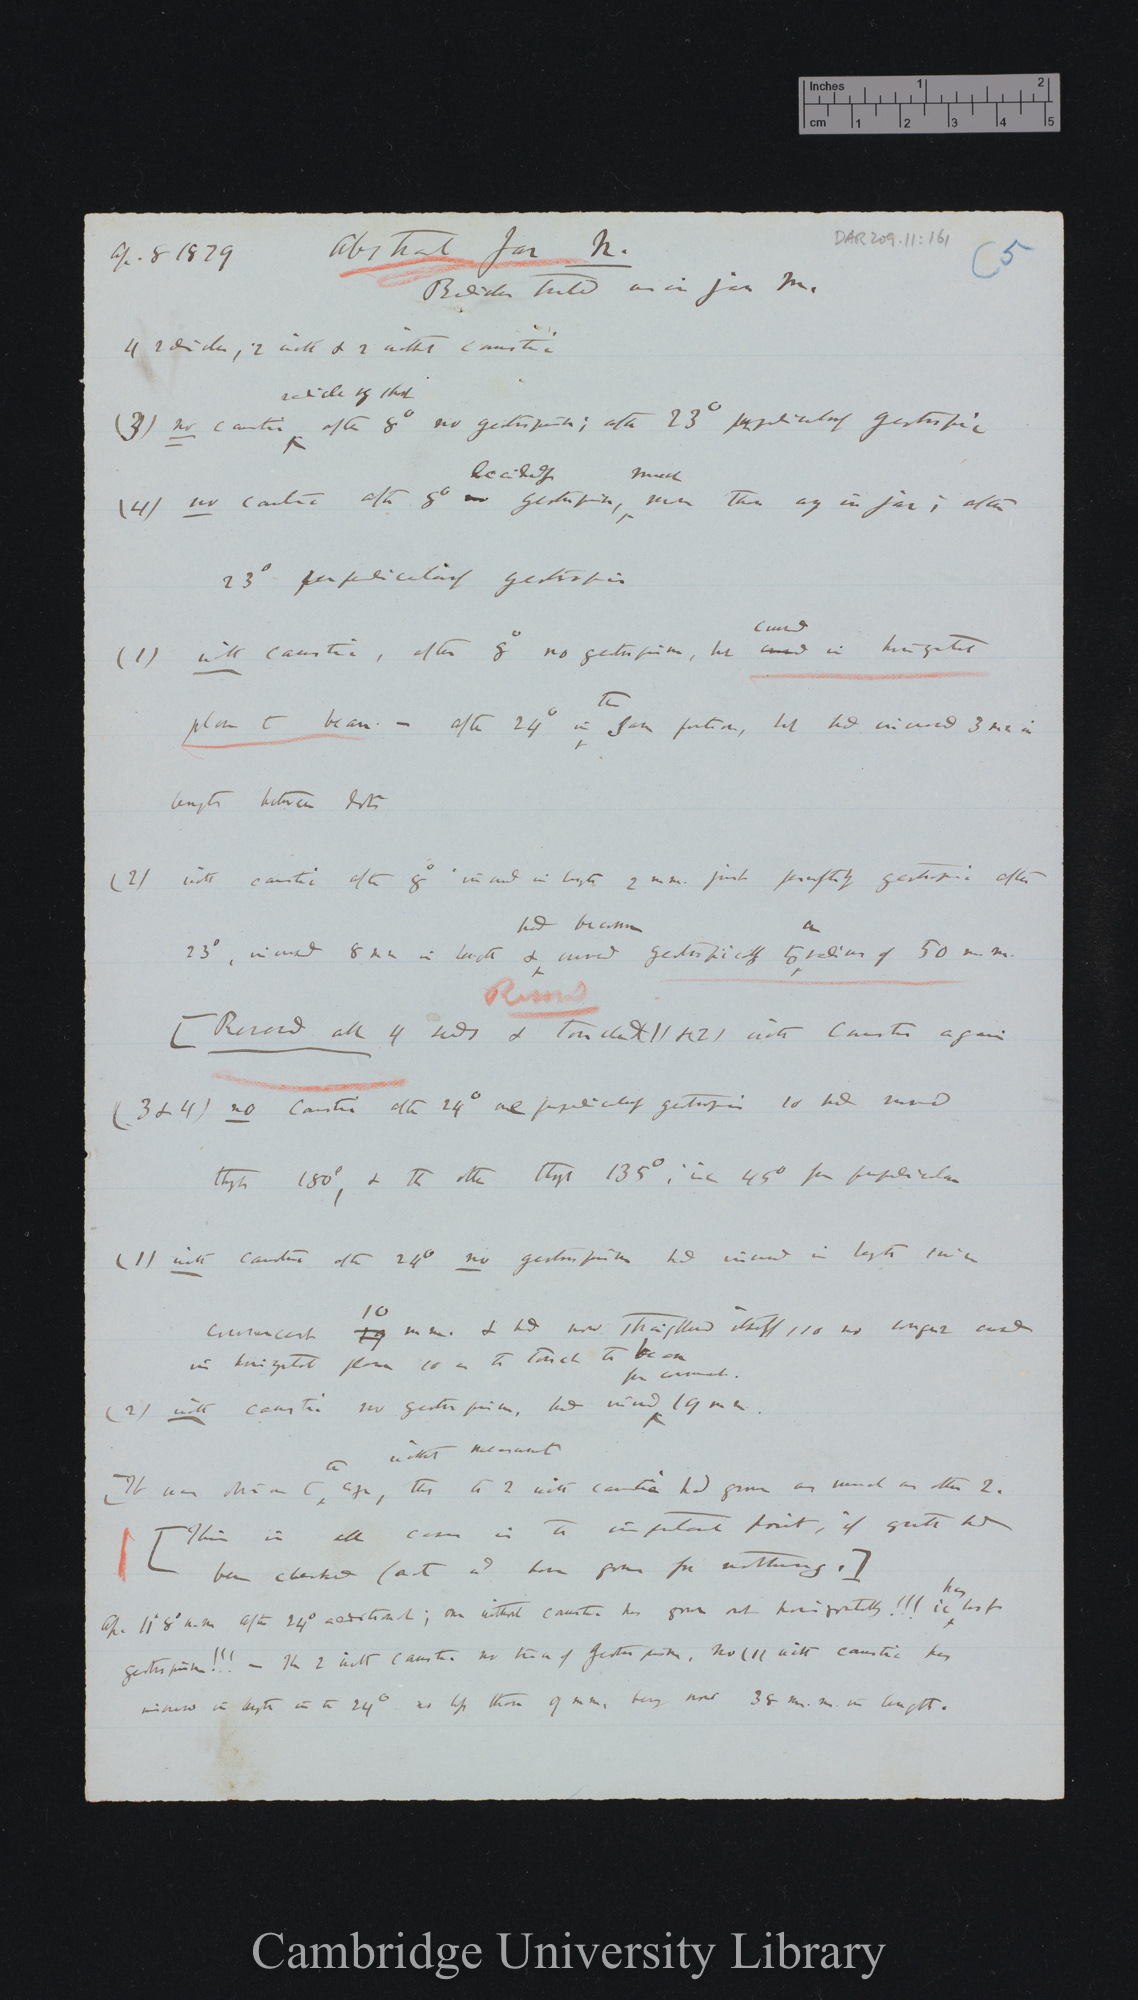 Inches 1 2
cm 1 2 3 4 5
DAR 209.11:161
Ap. 8 1879 Abstract Jar N. (5
Radicles treated as in jar M.
4 radicles, 2 with & 2 without caustic
radicle by shot
(3) no caustic after 8° no geotropism; after 23° perpendicularly geotropic
decidedly much
(4) no caustic after 8° no geotropism, more than any in jar; after
23° perpendicularly geotropic
curved
(1) with caustic, after 8° no geotropism, but curved in horizontal
plane to bean. — after 24° in the same position, but had increased 3 mm in
length between dots
(2) with caustic after 8° increased in length 2 mm. just geotropic after
had become a
23°, increased 8 mm in length & curved geotropically to radius of 50 m.m.
Reversed
[Reversed all 4 seeds & touched (1 & 2) with Caustic again
(3 & 4) no Caustic after 24° one perpendicularly geotropic so had moved
through 180°, & the other through 135°, ie 45° from perpendicular
(1) with caustic after 24° no geotropism had increased in length since
commencement 10 19 mm. & had now straightened itself, so no longer curved
in horizontal plane so as to touch the bean
from commenct.
(2) with caustic no geotropism, had increased 19 mm.
without measurement
[It was obvious to the eye, that the 2 with caustic had grown as much as other 2.
[This in all cases is the important point, if growth had
been checked (act would have gone for nothing.]
Ap. 11 8° a.m after 24° additional; one without caustic has grown out horizontally!!! ie has lost
geotropism!!! — The 2 with Caustic no trace of Geotropism. No (1) with caustic has
increased in length in the 24° no less than 9 mm, being now 38 m.m. in length.
Cambridge University Library